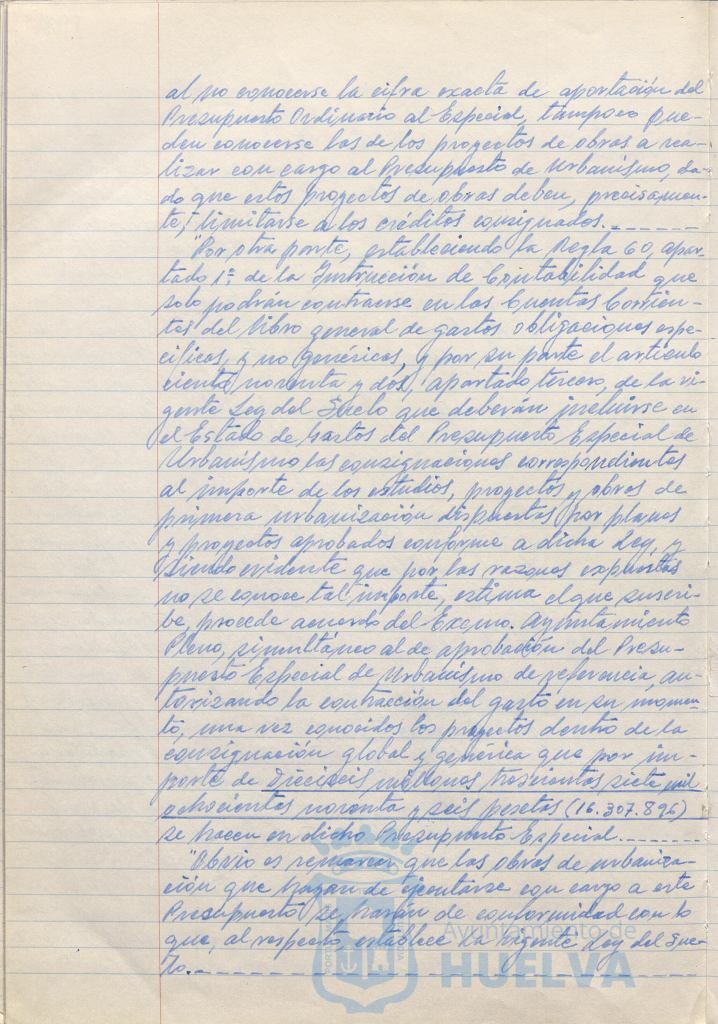 al no conocerse la cifra exacta de aportación del
Presupuesto Ordinario al Especial, tampoco pue-
den conocerse las de los proyectos de obras a rea-
lizar con cargo al Presupuesto de Urbanismo, da-
do que estos proyectos de obras deben, precisamen-
te, limitarse a los créditos consignados._ _ _ _ _ _
"Por otra parte, estableciendo la Regla 60, apar-
tado 1º de la Instrucción de Contabilidad que
solo podrán contraerse en las Cuentas Corrien-
tes del libro general de gastos obligaciones espe-
cíficas, y no genéricas, y por su parte el artículo
ciento noventa y dos, apartado tercero, de la vi-
gente Ley del Suelo que deberán incluirse en
el Estado de Gastos del Presupuesto Especial de
Urbanismo las consignaciones correspondientes
al importe de los estudios, proyectos y obras de
primera urbanización dispuestas por planes
y proyectos aprobados conforme a dicha Ley, y
siendo evidente que por las razones expuestas
no se conoce tal importe, estima el que suscri-
be, procede acuerdo del Excmo. Ayuntamiento
Pleno, simultáneo al de aprobación del Presu-
puesto Especial de Urbanismo de referencia, au-
torizando la contracción del gasto en su momen-
to, una vez conocidos los proyectos dentro de la
consignación global y genérica que por im-
porte de Dieciseis millones trescientas siete mil
ochocientas noventa y seis pesetas (16.307.896)
se hacen en dicho Presupuesto Especial._ _ _ _ _ _
"Obvio es remarcar que las obras de urbaniza-
ción que hayan de ejecutarse con cargo a este
Presupuesto se harán de conformidad con lo
que, al respecto, establece la vigente Ley del Sue-
lo._ _ _ _ _ _
Ayuntamiento de
HUELVA